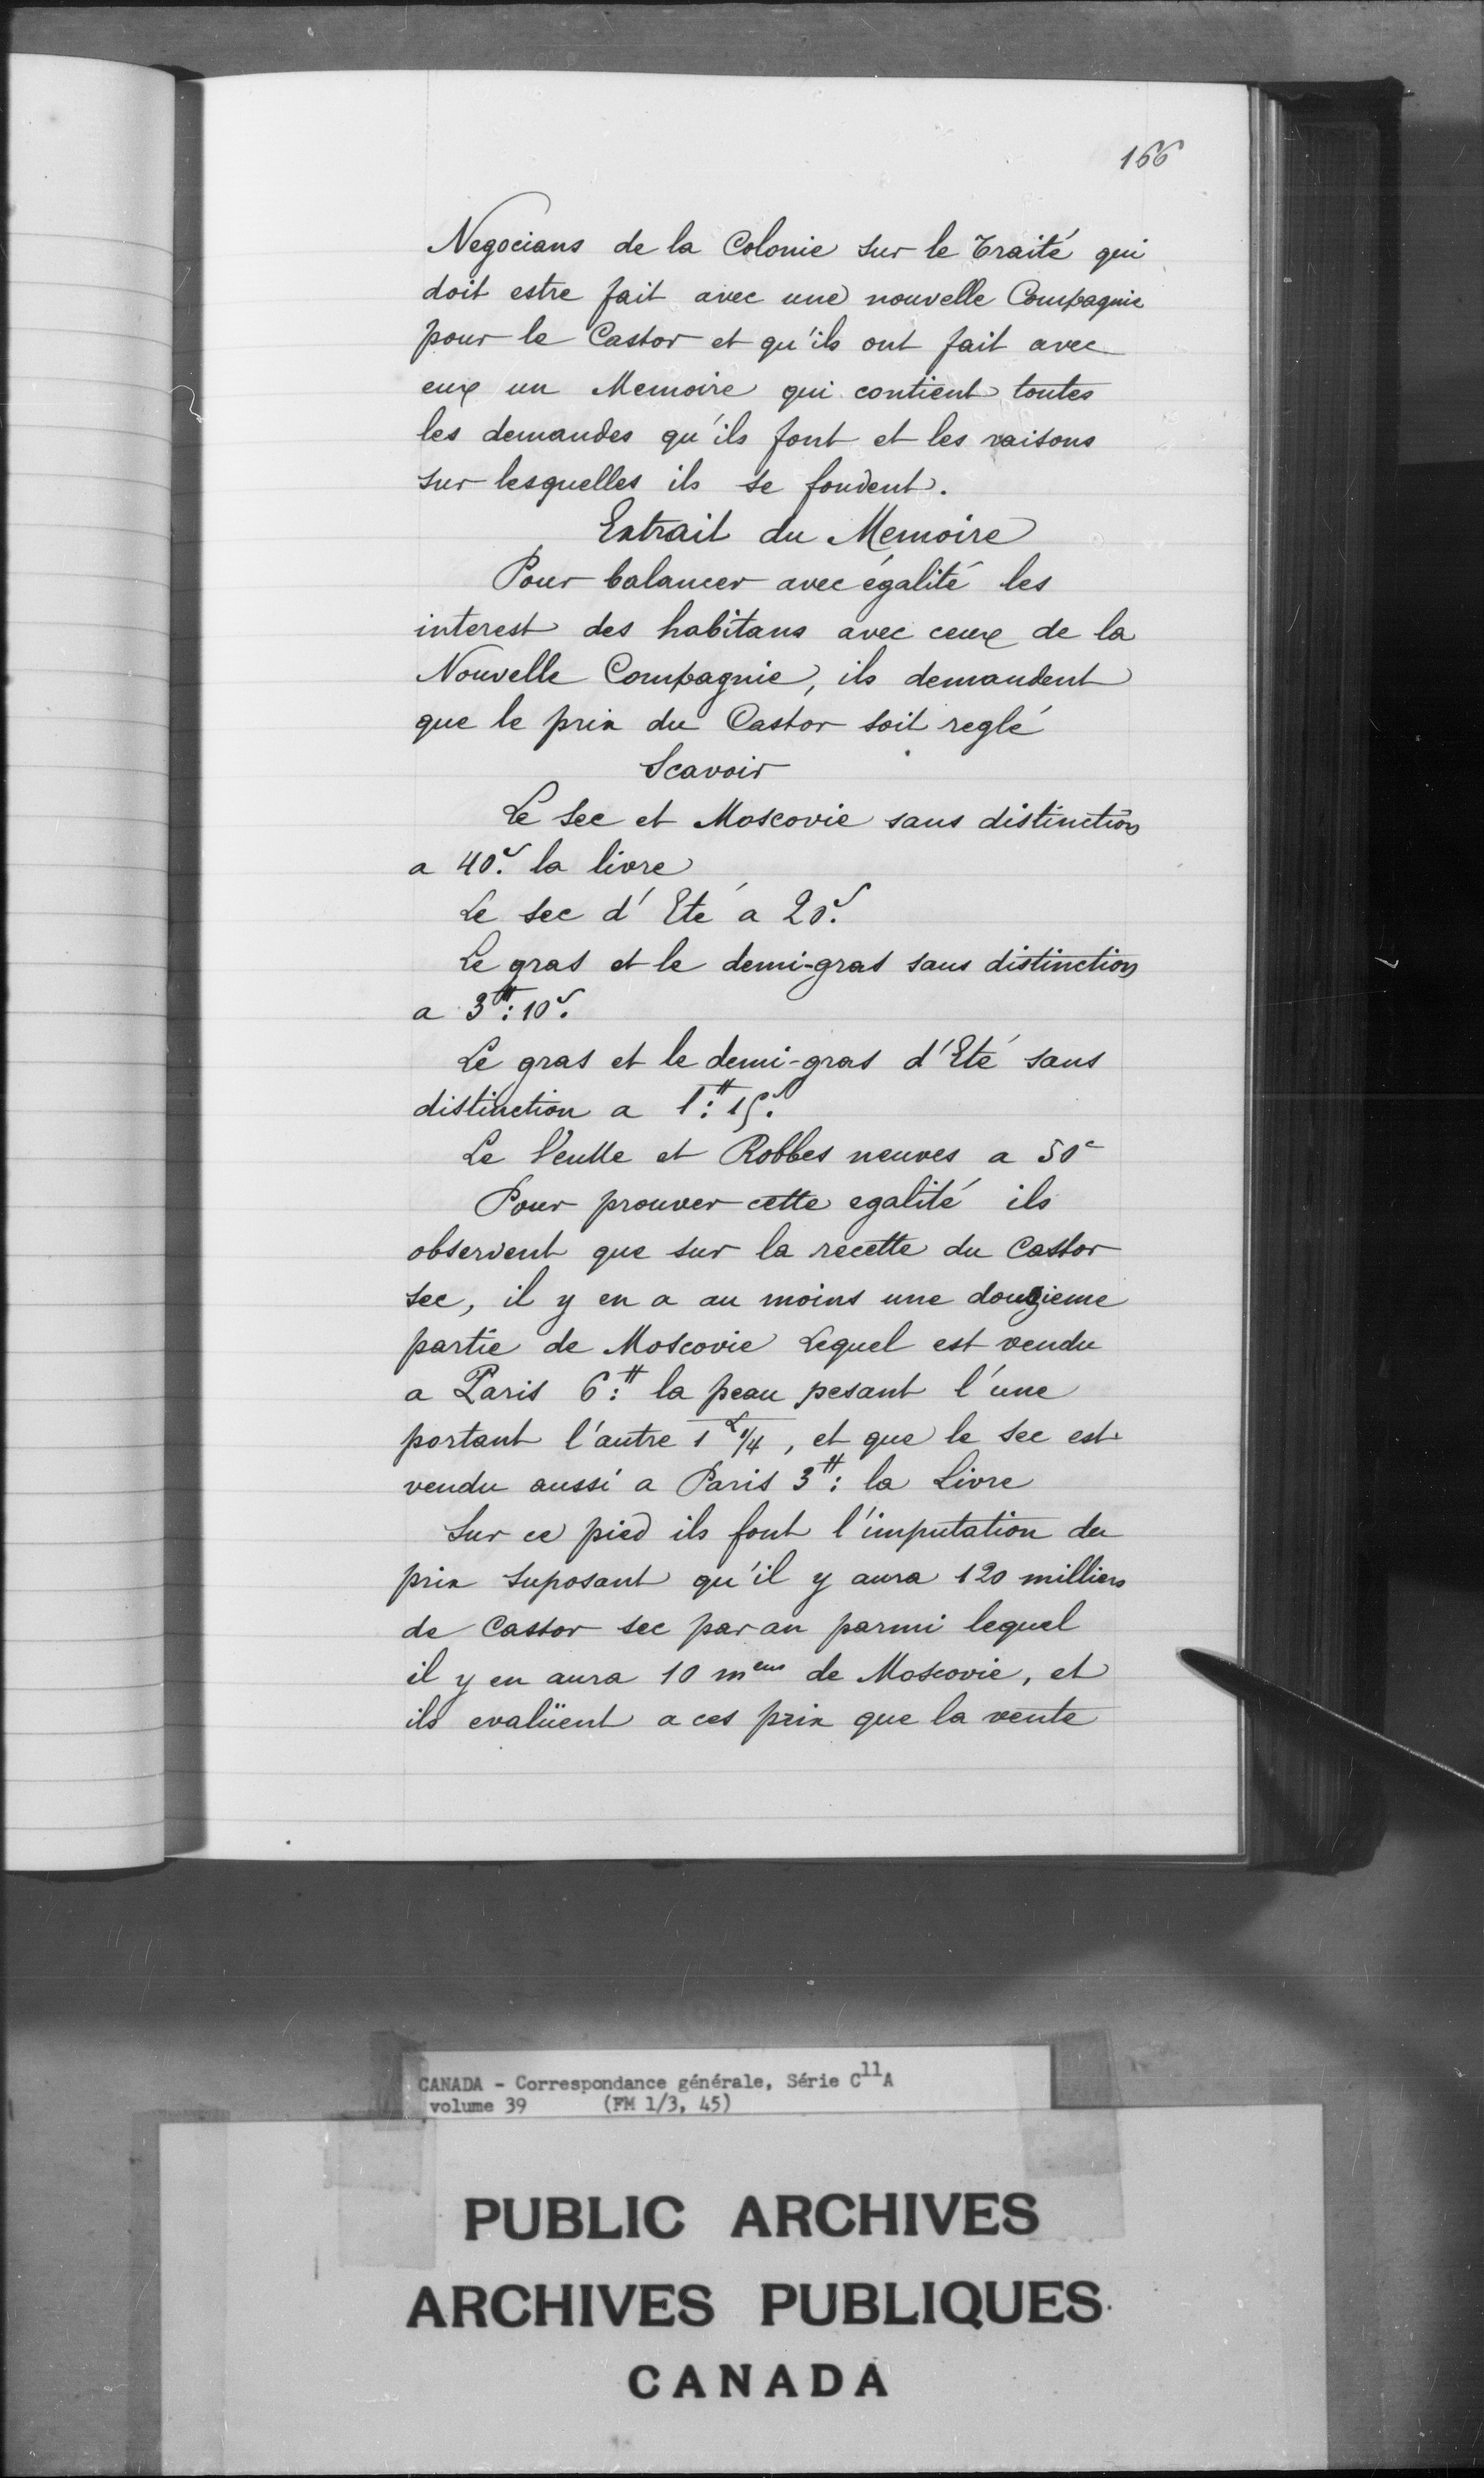 166
Negocians de la Colonie sur le Traité qui
doit estre fait avec une nouvelle Compagnie
pour le Castor et qu'ils ont fait avec
eux un Memoire qui contient toutes
les demandes qu'ils font et les raisons
sur lesquelles ils se fondent.
Extrait du Memoire
Pour balancer avec égalité les
interest des habitans avec ceux de la
Nouvelle Compagnie, ils demandent
que le prix du Castor soit reglé
Scavoir
Le sec et Moscovie sans distinction
a 40.s la livre
Le sec d'Eté a 20.s
Le gras et le demi-gras sans distinction
a 3.# 10.s
Le gras et le demi-gras d'Eté sans
distinction a 1.# 15.s
Le Veulle et Robbes neuves a 50s
Pour prouver cette egalité ils
observent que sur la recette du Castor
sec, il y en a au moins une douzieme
partie de Moscovie Lequel est vendu
a Paris 6.# la peau pesant l'une
portant l'autre 1 L 1/4, et que le sec est
vendu aussi a Paris 3#: la Livre
Sur ce pied ils font l'imputation du
prix suposant qu'il y aura 120 milliers
de Castor sec par an parmi lequel
il y en aura 10 mers de Moscovie, et
ils evalüent a ces prix que la vente
CANADA - Correspondance générale, Série C11A
volume 39 (FM 1/3, 45)
PUBLIC ARCHIVES
ARCHIVES PUBLIQUES
CANADA